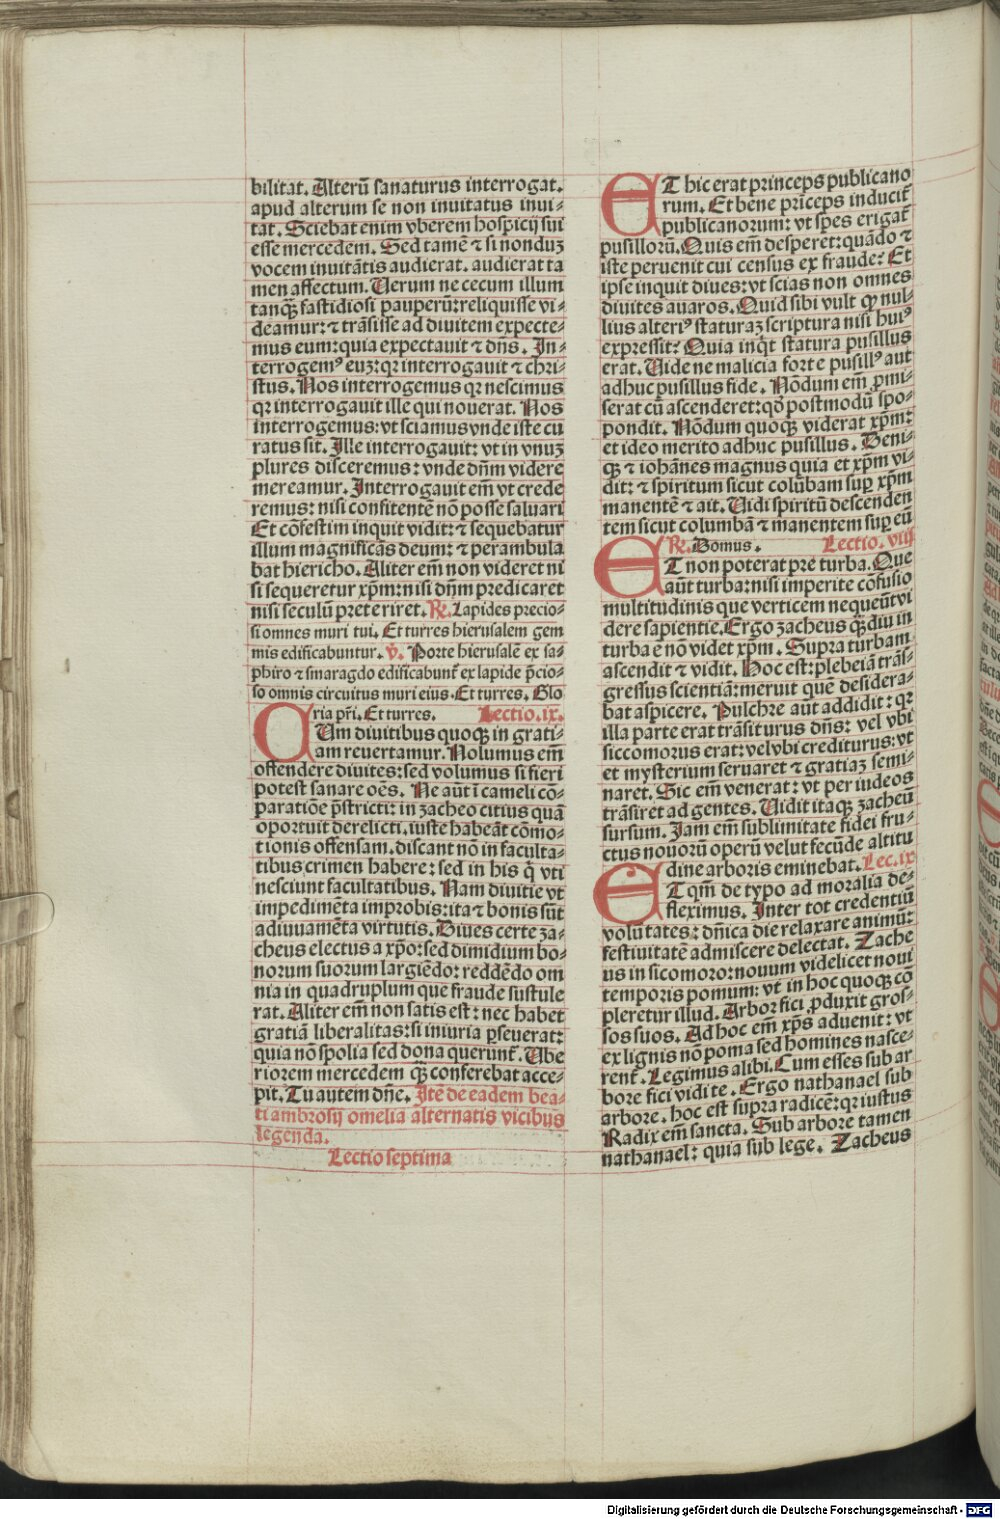 bilitat. Alterū sanaturus interrogat.
apud alterum se non inuitatus inui-
tat. Sciebat enim vberem hospicij sui
esse mercedem. Sed tamē ⁊ si nonduꝫ
vocem inuitātis audierat. audierat ta
men affectum. Uerum ne cecum illum
tanqꝫ fastidiosi pauperū: reliquisse vi-
deamur: ⁊ trāsisse ad diuitem expecte-
mus eum: quia expectauit ⁊ dn̄s. In-
terrogemꝰ euꝫ: qr interrogauit ⁊ chri-
stus. Nos interrogemus qr nescimus
qr interrogauit ille qui nouerat. Nos
interrogemus: vt sciamus vnde iste cu
ratus sit. Ille interrogauit: vt in vnuꝫ
plures disceremus: vnde dn̄m videre
mereamur. Interrogauit em̄ vt crede
remus: nisi confitentē nō posse saluari
Et cōfestim inquit vidit: ⁊ sequebatur
illum magnificās deum: ⁊ perambula
bat hiericho. Aliter em̄ non videret ni
si sequeretur xp̄m: nisi dn̄m predicaret
nisi seculū preteriret. ℟. Lapides precio-
si omnes muri tui. Et turres hierusalem gem
mis edificabuntur. ℣. Porte hierusalē ex sa-
phiro ⁊ smaragdo edificabunt᷑ ex lapide p̄cio-
so omnis circuitus muri eius. Et turres. Glo
ria pr̄i. Et turres. Lectio. ix.
CUm diuitibus quoqꝫ in grati-
am reuertamur. Nolumus em̄
offendere diuites: sed volumus si fieri
potest sanare oēs. Ne aūt ī cameli cō-
paratiōe p̄stricti: in zacheo citius quā
oportuit derelicti, iuste habeāt cōmo-
tionis offensam. discant nō in faculta-
tibus crimen habere: sed in his q̄ vti
nesciunt facultatibus. Nam diuitie vt
impedimēta improbis: ita ⁊ bonis sūt
adiuuamēta virtutis. Diues certe za-
cheus electus a xp̄o: sed dimidium bo-
norum suorum largiēdo: reddēdo om
nia in quadruplum que fraude sustule
rat. Aliter em̄ non satis est: nec habet
gratiā liberalitas: si iniuria ꝑseuerat:
quia nō spolia sed dona querunt᷑. Ube
riorem mercedem qꝫ conferebat acce-
pit. Tu autem dn̄e. Itē de eadem bea-
ti ambrosij omelia alternatis vicibus
legenda.
Lectio septima
ET hic erat princeps publicano
rum. Et bene prīceps inducit᷑
publicanorum: vt spes erigat᷑
pusillorū. Quis em̄ desperet: quādo ⁊
iste peruenit cui census ex fraude? Et
ipse inquit diues: vt scias non omnes
diuites auaros. Quid sibi vult ꝙ nul-
lius alteriꝰ staturaꝫ scriptura nisi huiꝰ
expressit? Quia inq̄t statura pusillus
erat. Uide ne malicia forte pusillꝰ aut
adhuc pusillus fide. Nōdum em̄ ꝓmi-
serat cū ascenderet: qd̄ postmodū spo-
pondit. Nōdum quoqꝫ viderat xp̄m:
et ideo merito adhuc pusillus. Deni-
qꝫ ⁊ iohānes magnus quia et xp̄m vi-
dit: ⁊ spiritum sicut colūbam suꝑ xp̄m
manentē ⁊ ait. Uidi spiritū descenden
tem sicut columbā ⁊ manentem suꝑ eū
℟. Domus. Lectio. viij
ET non poterat pre turba. Que
aūt turba: nisi imperite cōfusio
multitudinis que verticem nequeūt vi
dere sapientie. Ergo zacheus qꝫdiu in
turba ē nō videt xp̄m. Supra turbam
ascendit ⁊ vidit. Hoc est: plebeiā trās-
gressus scientiā: meruit quē desidera-
bat aspicere. Pulchre aūt addidit: qr
illa parte erat trāsiturus dn̄s: vel vbi
siccomorus erat: vel vbi crediturus: vt
et mysterium seruaret ⁊ gratiaꝫ semi-
naret. Sic em̄ venerat: vt per iudeos
trāsiret ad gentes. Uidit itaqꝫ zacheū
sursum. Jam em̄ sublimitate fidei fru-
ctus nouorū operū velut fecūde altitu
dine arboris eminebat. Lec. ix
ET qm̄ de typo ad moralia de-
fleximus. Inter tot credentiū
volutates: dn̄ica die relaxare animū:
festiuitatē admiscere delectat. Zache
us in sicomoro: nouum videlicet noui
temporis pomum: vt in hoc quoqꝫ cō
pleretur illud. Arbor fici ꝓduxit gros-
sos suos. Ad hoc em̄ xp̄s aduenit: vt
ex lignis nō poma sed homines nasce-
rent᷑. Legimus alibi. Cum esses sub ar
bore fici vidi te. Ergo nathanael sub
arbore. hoc est supra radicē: qr iustus
Radix em̄ sancta. Sub arbore tamen
nathanael: quia sub lege. Zacheus
Digitalisierung gefördert durch die Deutsche Forschungsgemeinschaft - DFG